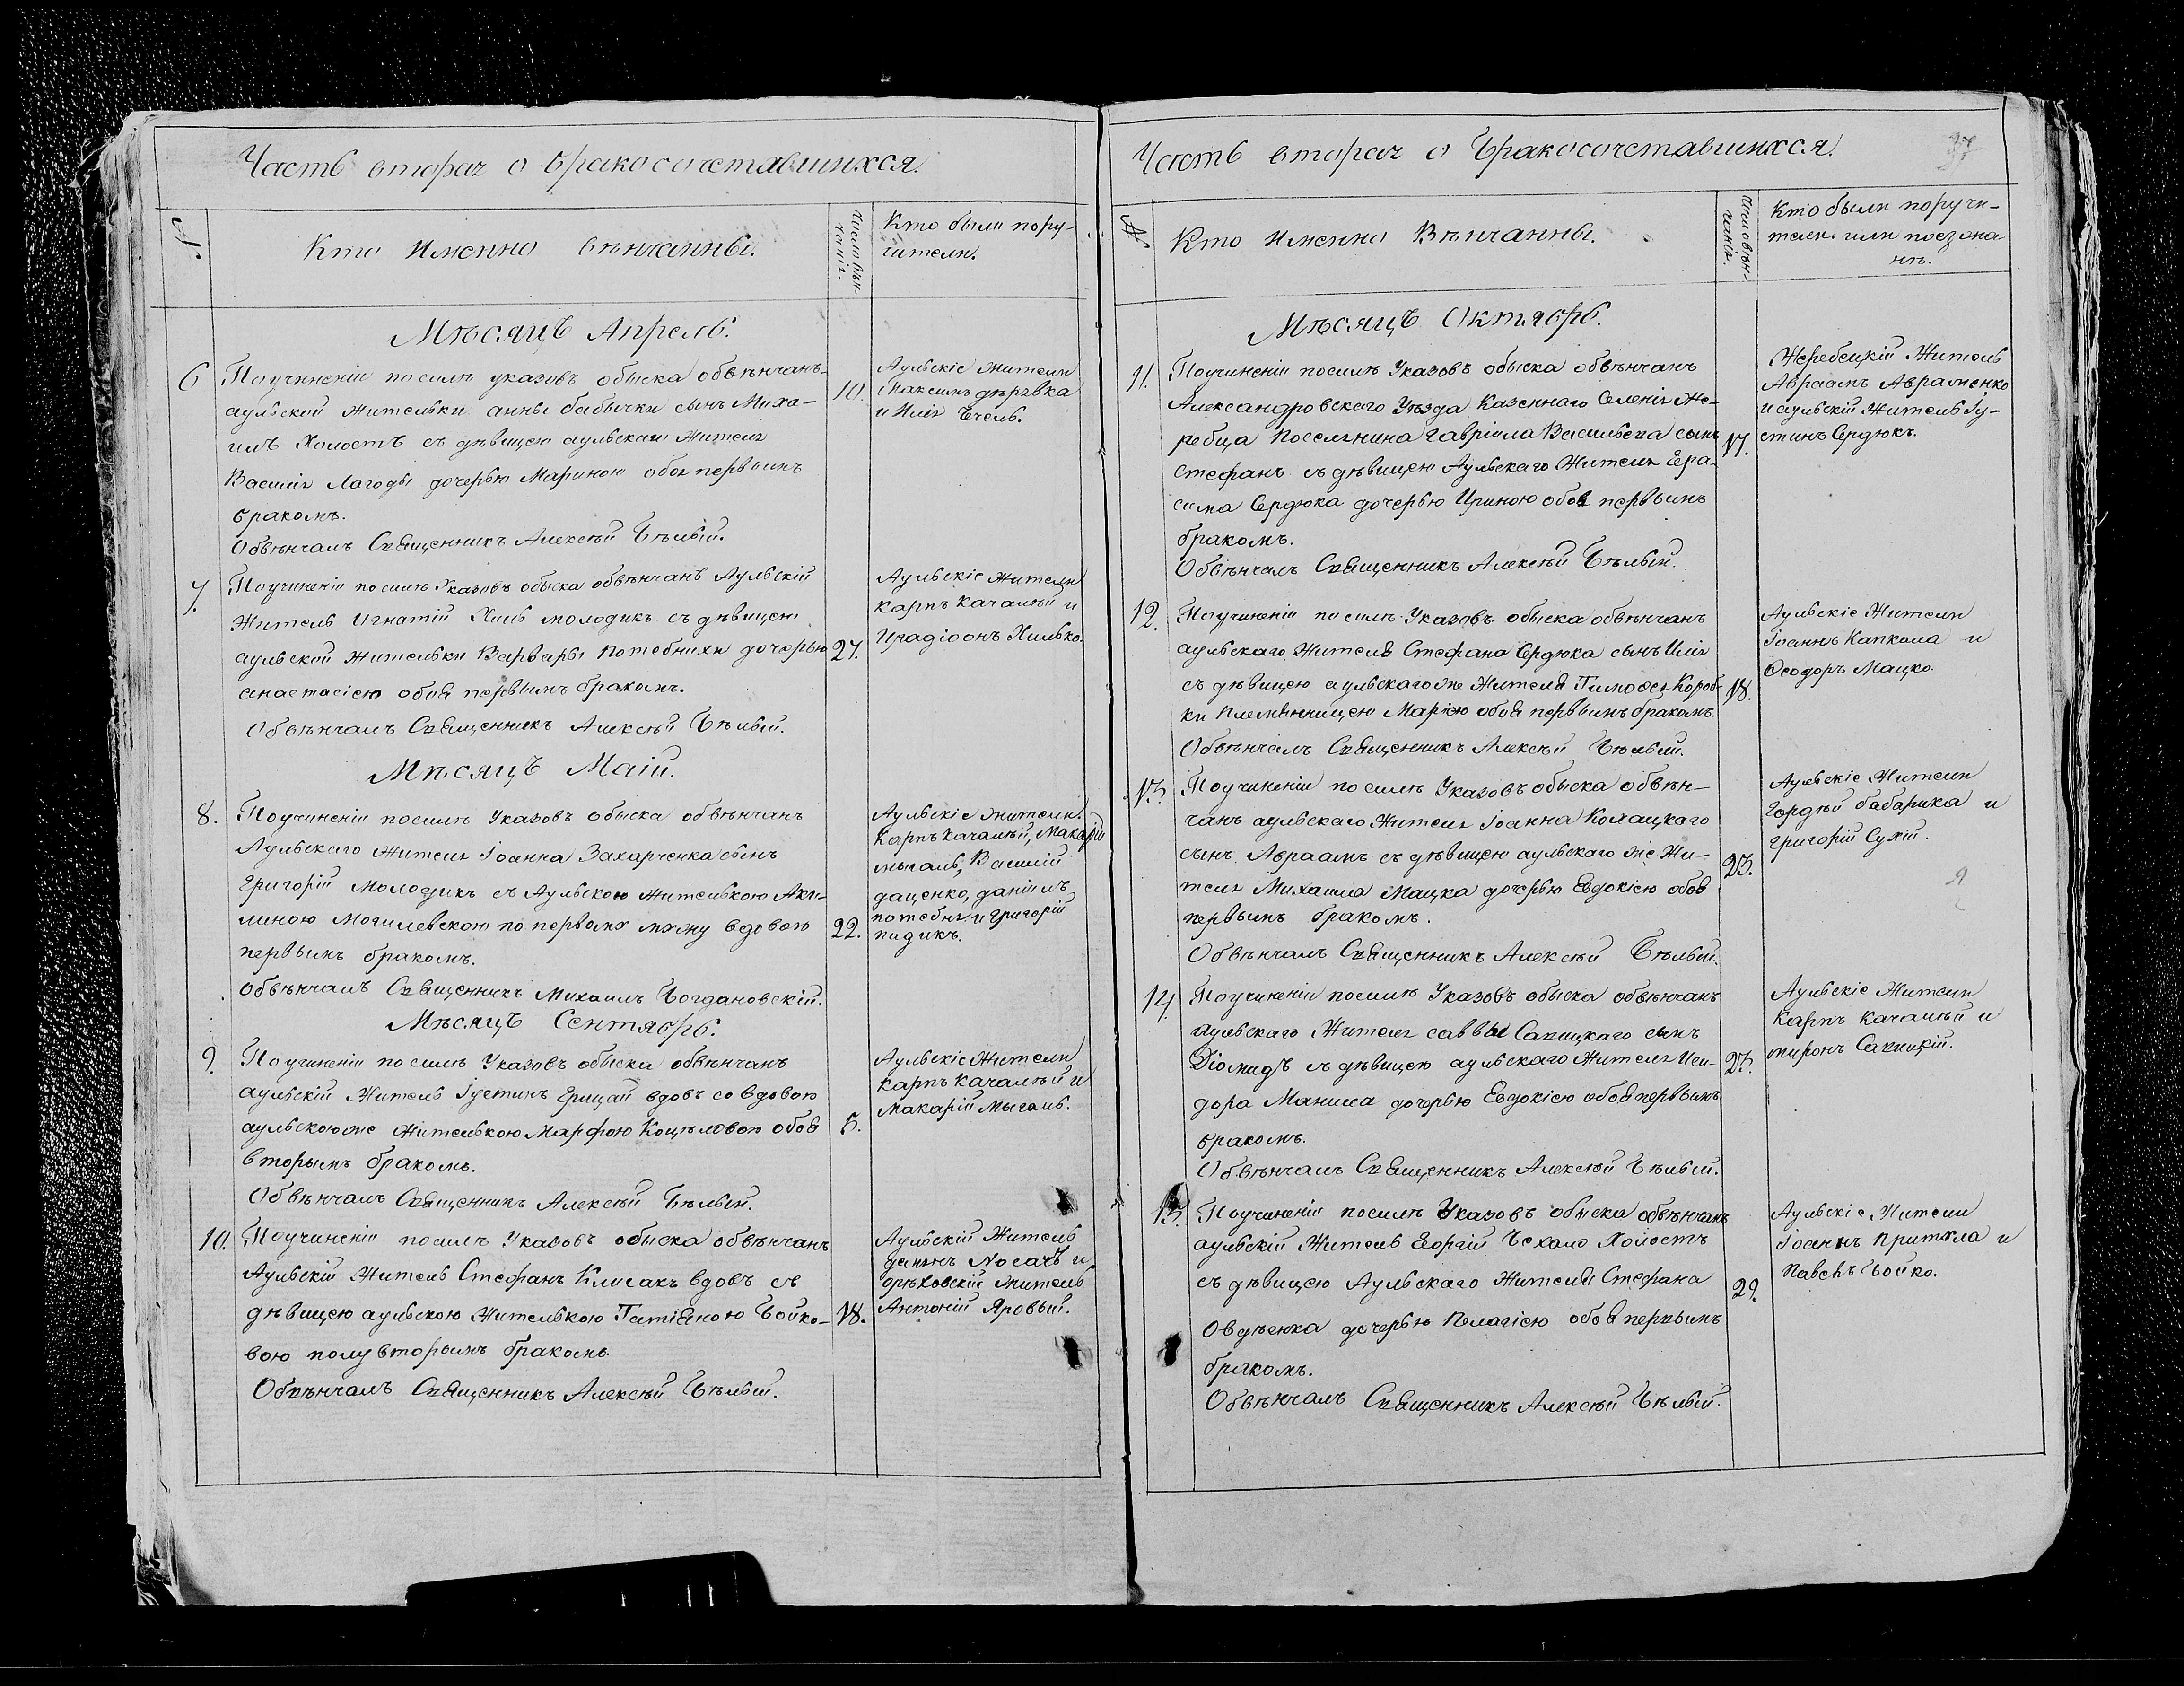 Часть вторая о бракосочетавшихся.
№.
Кто именно вѣнчанны.
Число вѣн-
чанія.
Кто были пору-
чители.
Мѣсяцъ Апрель.
6
Поучиненіи посилѣ указовъ обыска обвѣнчанъ
аульской жительки анны бабычки сынъ Миха-
илъ холостъ съ дѣвицею аульскаго жителя
Василія Лагоды дочерью Мариною обоя первымъ
бракомъ.
Обвѣнчалъ Священникъ Алексѣй Бѣлый.
10.
Аульскіе жители
Максимъ
и Илія
7.
Поучиненіи посилѣ Указовъ обыска обвѣнчанъ Аульскій
житель Игнатій молодикъ съ дѣвицею
аульской жительки Варвары Потебнихи дочерью
анастасіею обоя первымъ бракомъ.
Обвѣнчалъ Священникъ Алексѣй Бѣлый.
27.
Аульскіе жители
карпъ качалый и
Иродіонъ Хилько.
Мѣсяцъ Маій.
8.
Поучиненіи посилѣ Указовъ обыска обвѣнчанъ
Аульскаго жителя Іоанна Захарченка сынъ
Григорій молодикъ съ Аульскою жителькою Аки-
линою Могилевскою по первомъ мужу вдовою
первымъ бракомъ.
Обвѣнчалъ Священникъ Михаилъ Богдановскій.
22.
Аульскіе жители.
Карпъ качалый, Макарій
мыгаль, Василій
даценко, даніилъ
потебня и григорій
пидикъ.
Мѣсяцъ Сентябрь.
9.
Поучиненіи посилѣ Указовъ обыска обвѣнчанъ
аульскій житель Іустинъ Грицай вдовъ со вдовою
аульскоюже жителькою Марфою Коцыловою обоя
вторымъ бракомъ.
Обвѣнчалъ Священникъ Алексѣй Бѣлый.
5.
Аульскіе жители
карпъ качалый и
Макарій Мыгаль.
10.
Поучиненіи посилѣ Указовъ обыска обвѣнчанъ
Аульскій житель Стефанъ Клисакъ вдовъ съ
дѣвицею аульскою жителькою Татіаною Бойко-
вою полувторымъ бракомъ.
Обвѣнчалъ Священникъ Алексѣй Бѣлый.
18.
Аульскій житель
Носачъ и
орѣховскій житель
Антоній Яровый.
Часть вторая о бракосочетавшихся.
№.
Кто именно Вѣнчанны.
Число вѣн-
чанія.
Кто были поручи-
тели или поезжа-
нѣ.
Мѣсяцъ Октябрь.
11.
Поучиненіи посилѣ Указовъ обыска обвѣнчанъ
Александровскаго Уѣзда Казеннаго Селенія Же-
ребца поселянина гавріила Васильева сынъ
Стефанъ съ дѣвицею Аульскаго жителя Гера-
сима Сердюка дочерью Ириною обоя первымъ
бракомъ.
Обвѣнчалъ Священникъ Алексѣй Бѣлый.
17.
Жеребецкій житель
Авраамъ Авраменко
и аульскій житель Іу-
стинъ Сердюкъ.
12.
Поучиненіи посилѣ Указовъ обыска обвѣнчанъ
аульскаго жителя Стефана Сердюка сынъ Илія
съ дѣвицею аульскагоже жителя Тимоѳея Короб-
ки племянницею Маріею обоя первымъ бракомъ.
Обвѣнчалъ Священникъ Алексѣй Бѣлый.
18.
Аульскіе жители
Іоаннъ Капкала и
Ѳеодоръ Мацко.
13.
Поучиненіи посилѣ Указовъ обыска обвѣн-
чанъ аульскаго жителя Іоанна Колацкаго
сынъ Авраамъ съ дѣвицею аульскаго же жи-
теля Михаила Мацка дочерью Евдокіею обоя
первымъ бракомъ.
Обвѣнчалъ Священникъ Алексѣй Бѣлый.
23.
Аульскіе жители
гордѣй бабарика и
григорій Сухій.
14.
Поучиненіи посилѣ Указовъ обыска обвѣнчанъ
аульскаго жителя саввы Савицкаго сынъ
Діомидъ съ дѣвицею аульскаго жителя Иси-
дора Маниса дочерью Евдокіею обоя первымъ
бракомъ.
Обвѣнчалъ Священникъ Алексѣй Бѣлый.
23.
Аульскіе жители
Карпъ качалый и
миронъ Савицкій.
15.
Поучиненіи посилѣ Указовъ обыска обвѣнчанъ
аульскій житель Георгій холостъ
съ дѣвицею Аульскаго жителя Стефана
Овдѣенка дочерью Пелагіею обоя первымъ
бракомъ.
Обвѣнчалъ Священникъ Алексѣй Бѣлый.
29.
Аульскіе жители
Іоаннъ Притула и
Павелъ Бойко.